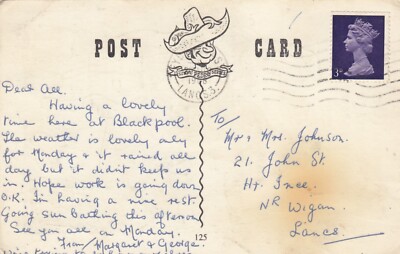 POST CARD
Dear All.
Having a lovely
time here at Blackpool.
The weather is lovely only
for Monday & it rained all
day but it didn't keep us
in. Hope work is going down
O.K. Im having a nice rest.
Going sun bathing this afternoon
See you all on Monday.
From Margaret & George.
125
LANCS.
3D
To/
Mr & Mrs. Johnson.
21. John St.
Hr. Ince.
NR Wigan.
Lancs.